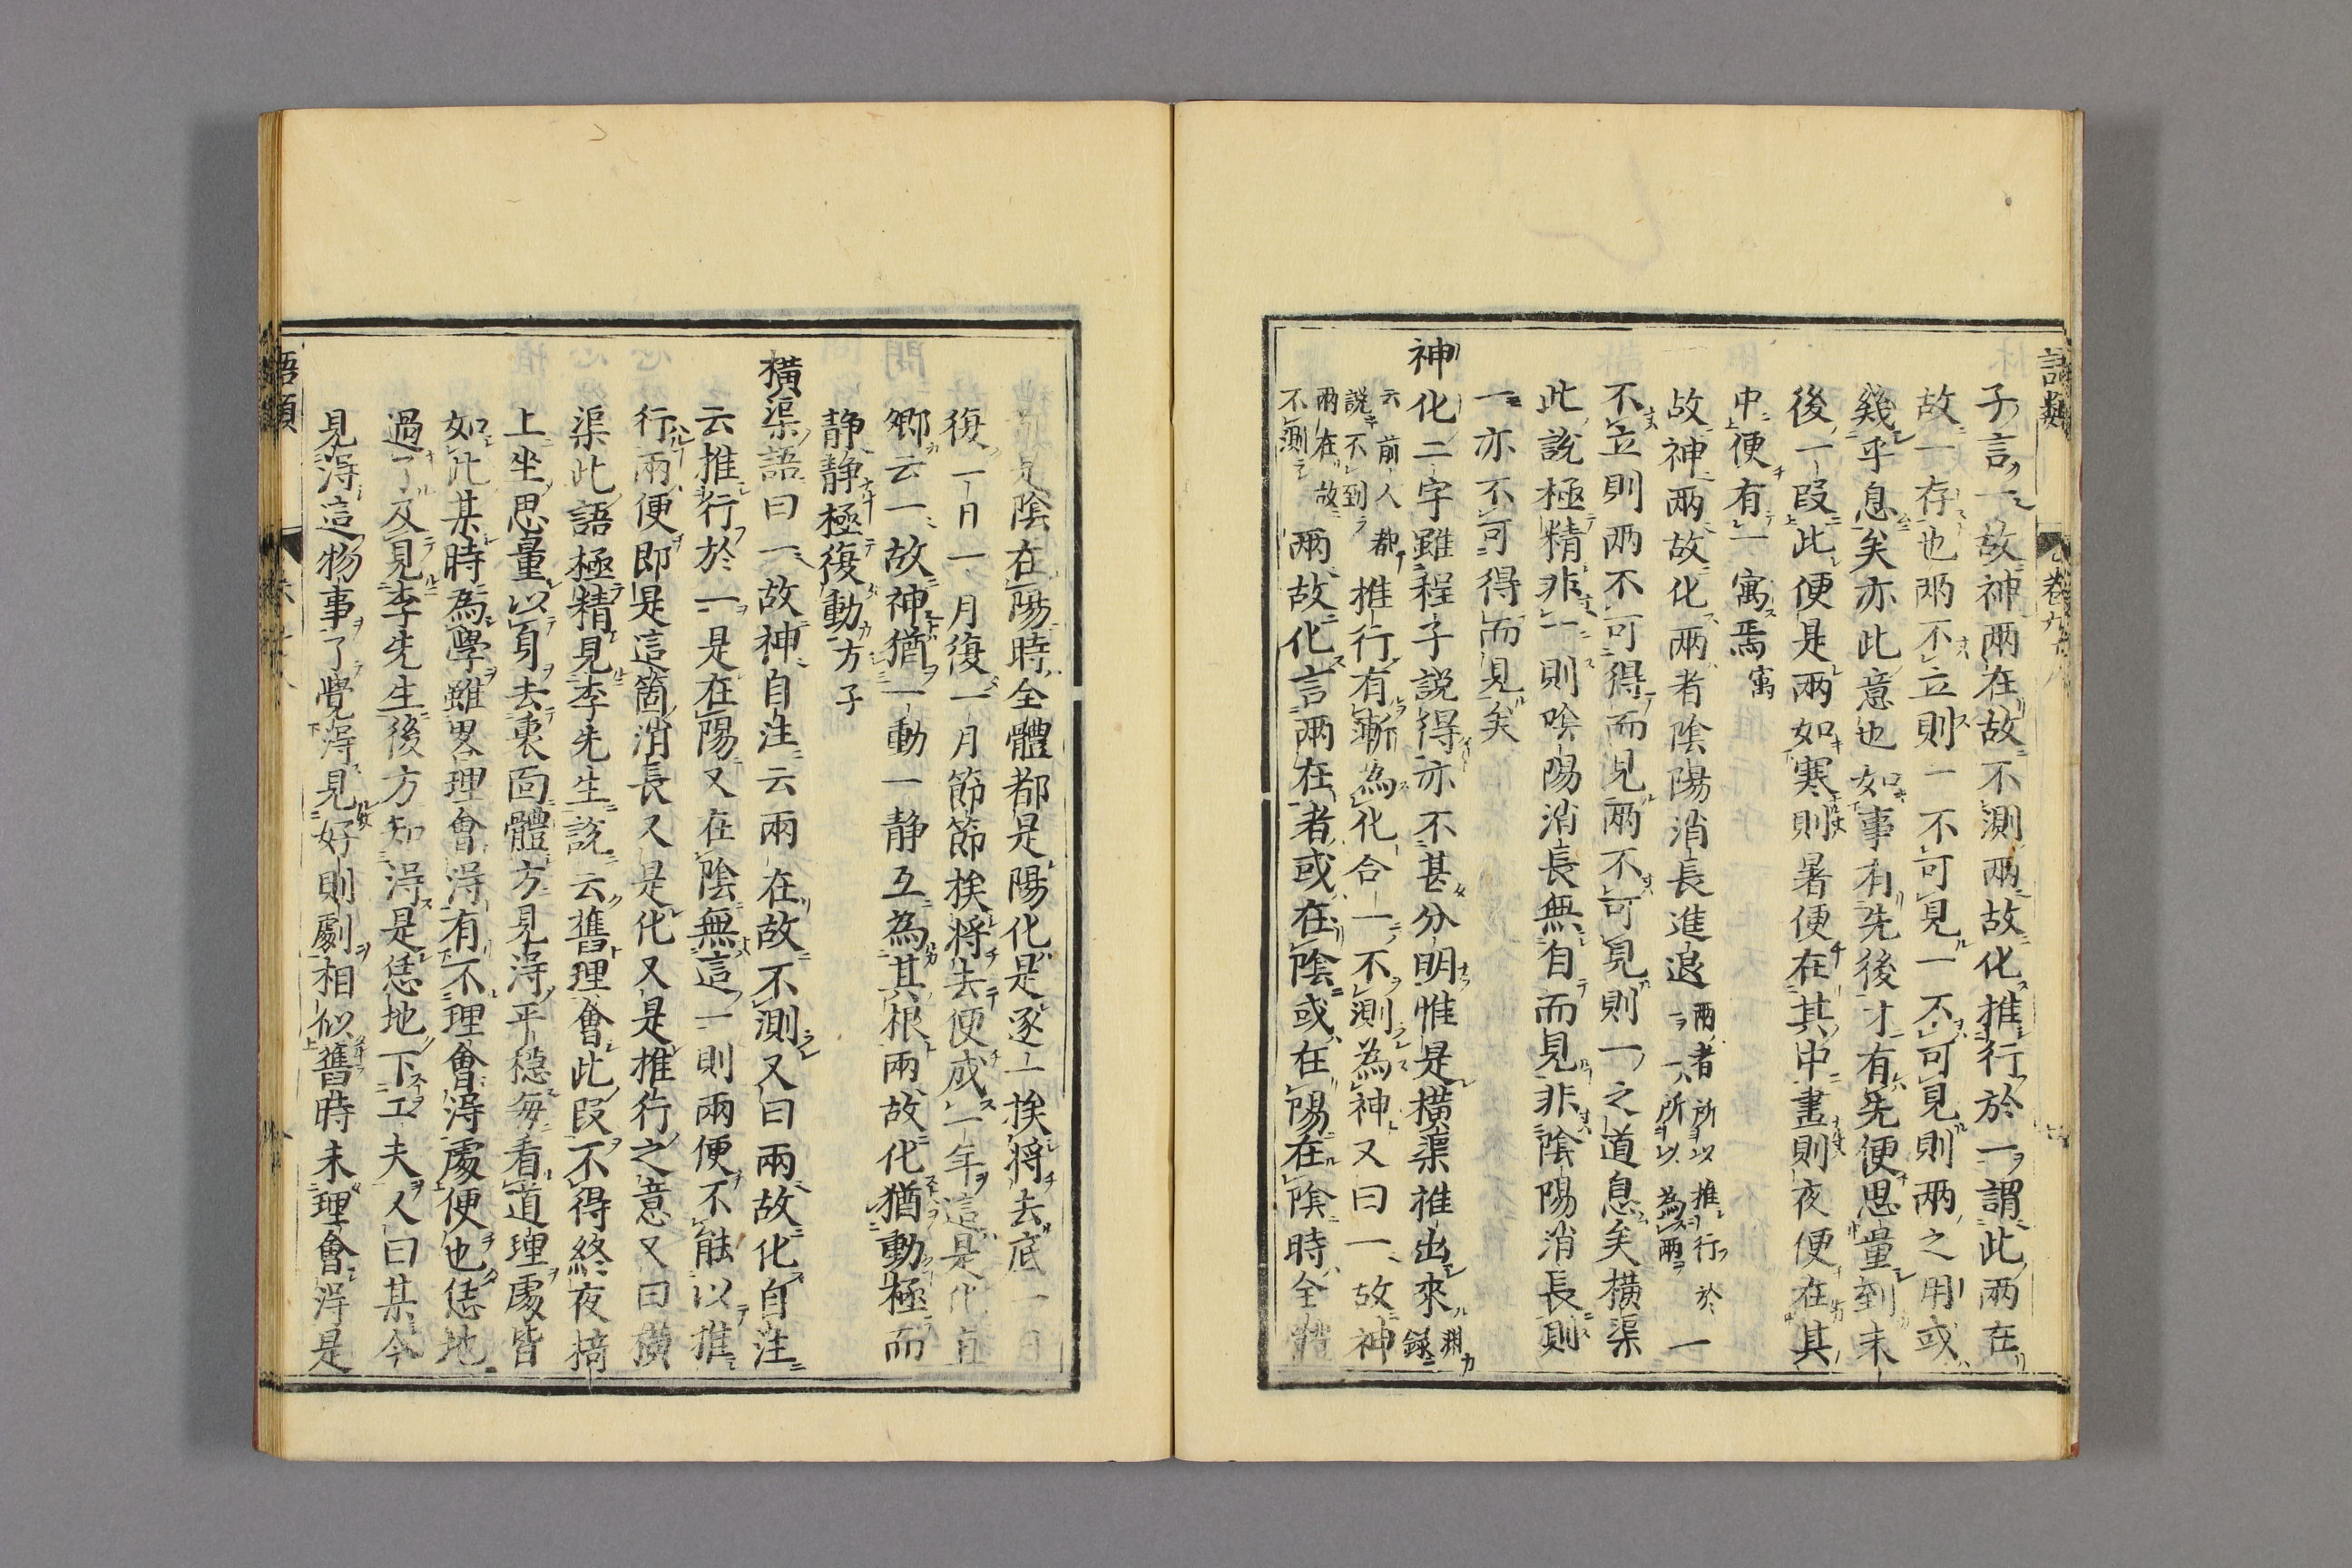 語類
卷九十八
子言一故神兩在故不測兩故化推行於一謂此兩在
故一存也兩不立則一不可見一不可見則兩之用或
幾乎息矣亦此意也如事有先後才有先便思量到末
後一段此便是兩如寒則暑便在其中晝則夜便在其
中便有一寓焉㝢
故神兩故化兩者陰陽消長進退兩者所以推行於一
一所以為兩一
不立則兩不可得而見兩不可見則一之道息矣橫渠
此說極精非一則陰陽消長無自而見非陰陽消長則
一亦不可得而見矣
神化二字雖程子說得亦不甚分明惟是橫渠推出來淵錄
云前人都
說不到推行有漸為化合一不測為神又曰一故神
兩在故
不測兩故化言兩在者或在陰或在陽在陰時全體
都是陰在陽時全體都是陽化是逐一挨將去底一日
復一日一月復一月節節挨將去便成一年這是化直
卿云一故神猶一動一静互為其根兩故化猶動極而
静静極復動方子
橫渠語曰一故神自注云兩在故不測又曰兩故化自注
云推行於一是在陽又在陰無這一則兩便不能以推
行兩便即是這箇消長又是化又是推行之意又曰橫
渠此語極精見李先生說云舊理會此段不得終夜椅
上坐思量以身去裏面體方見得平穩每看道理處皆
如此某時為學雖畧理會得有不理會得處便也恁地
過了及見李先生後方知得是恁地下工夫又曰某今
見得這物事了覺得見好則劇相似舊時未理會得是
語類